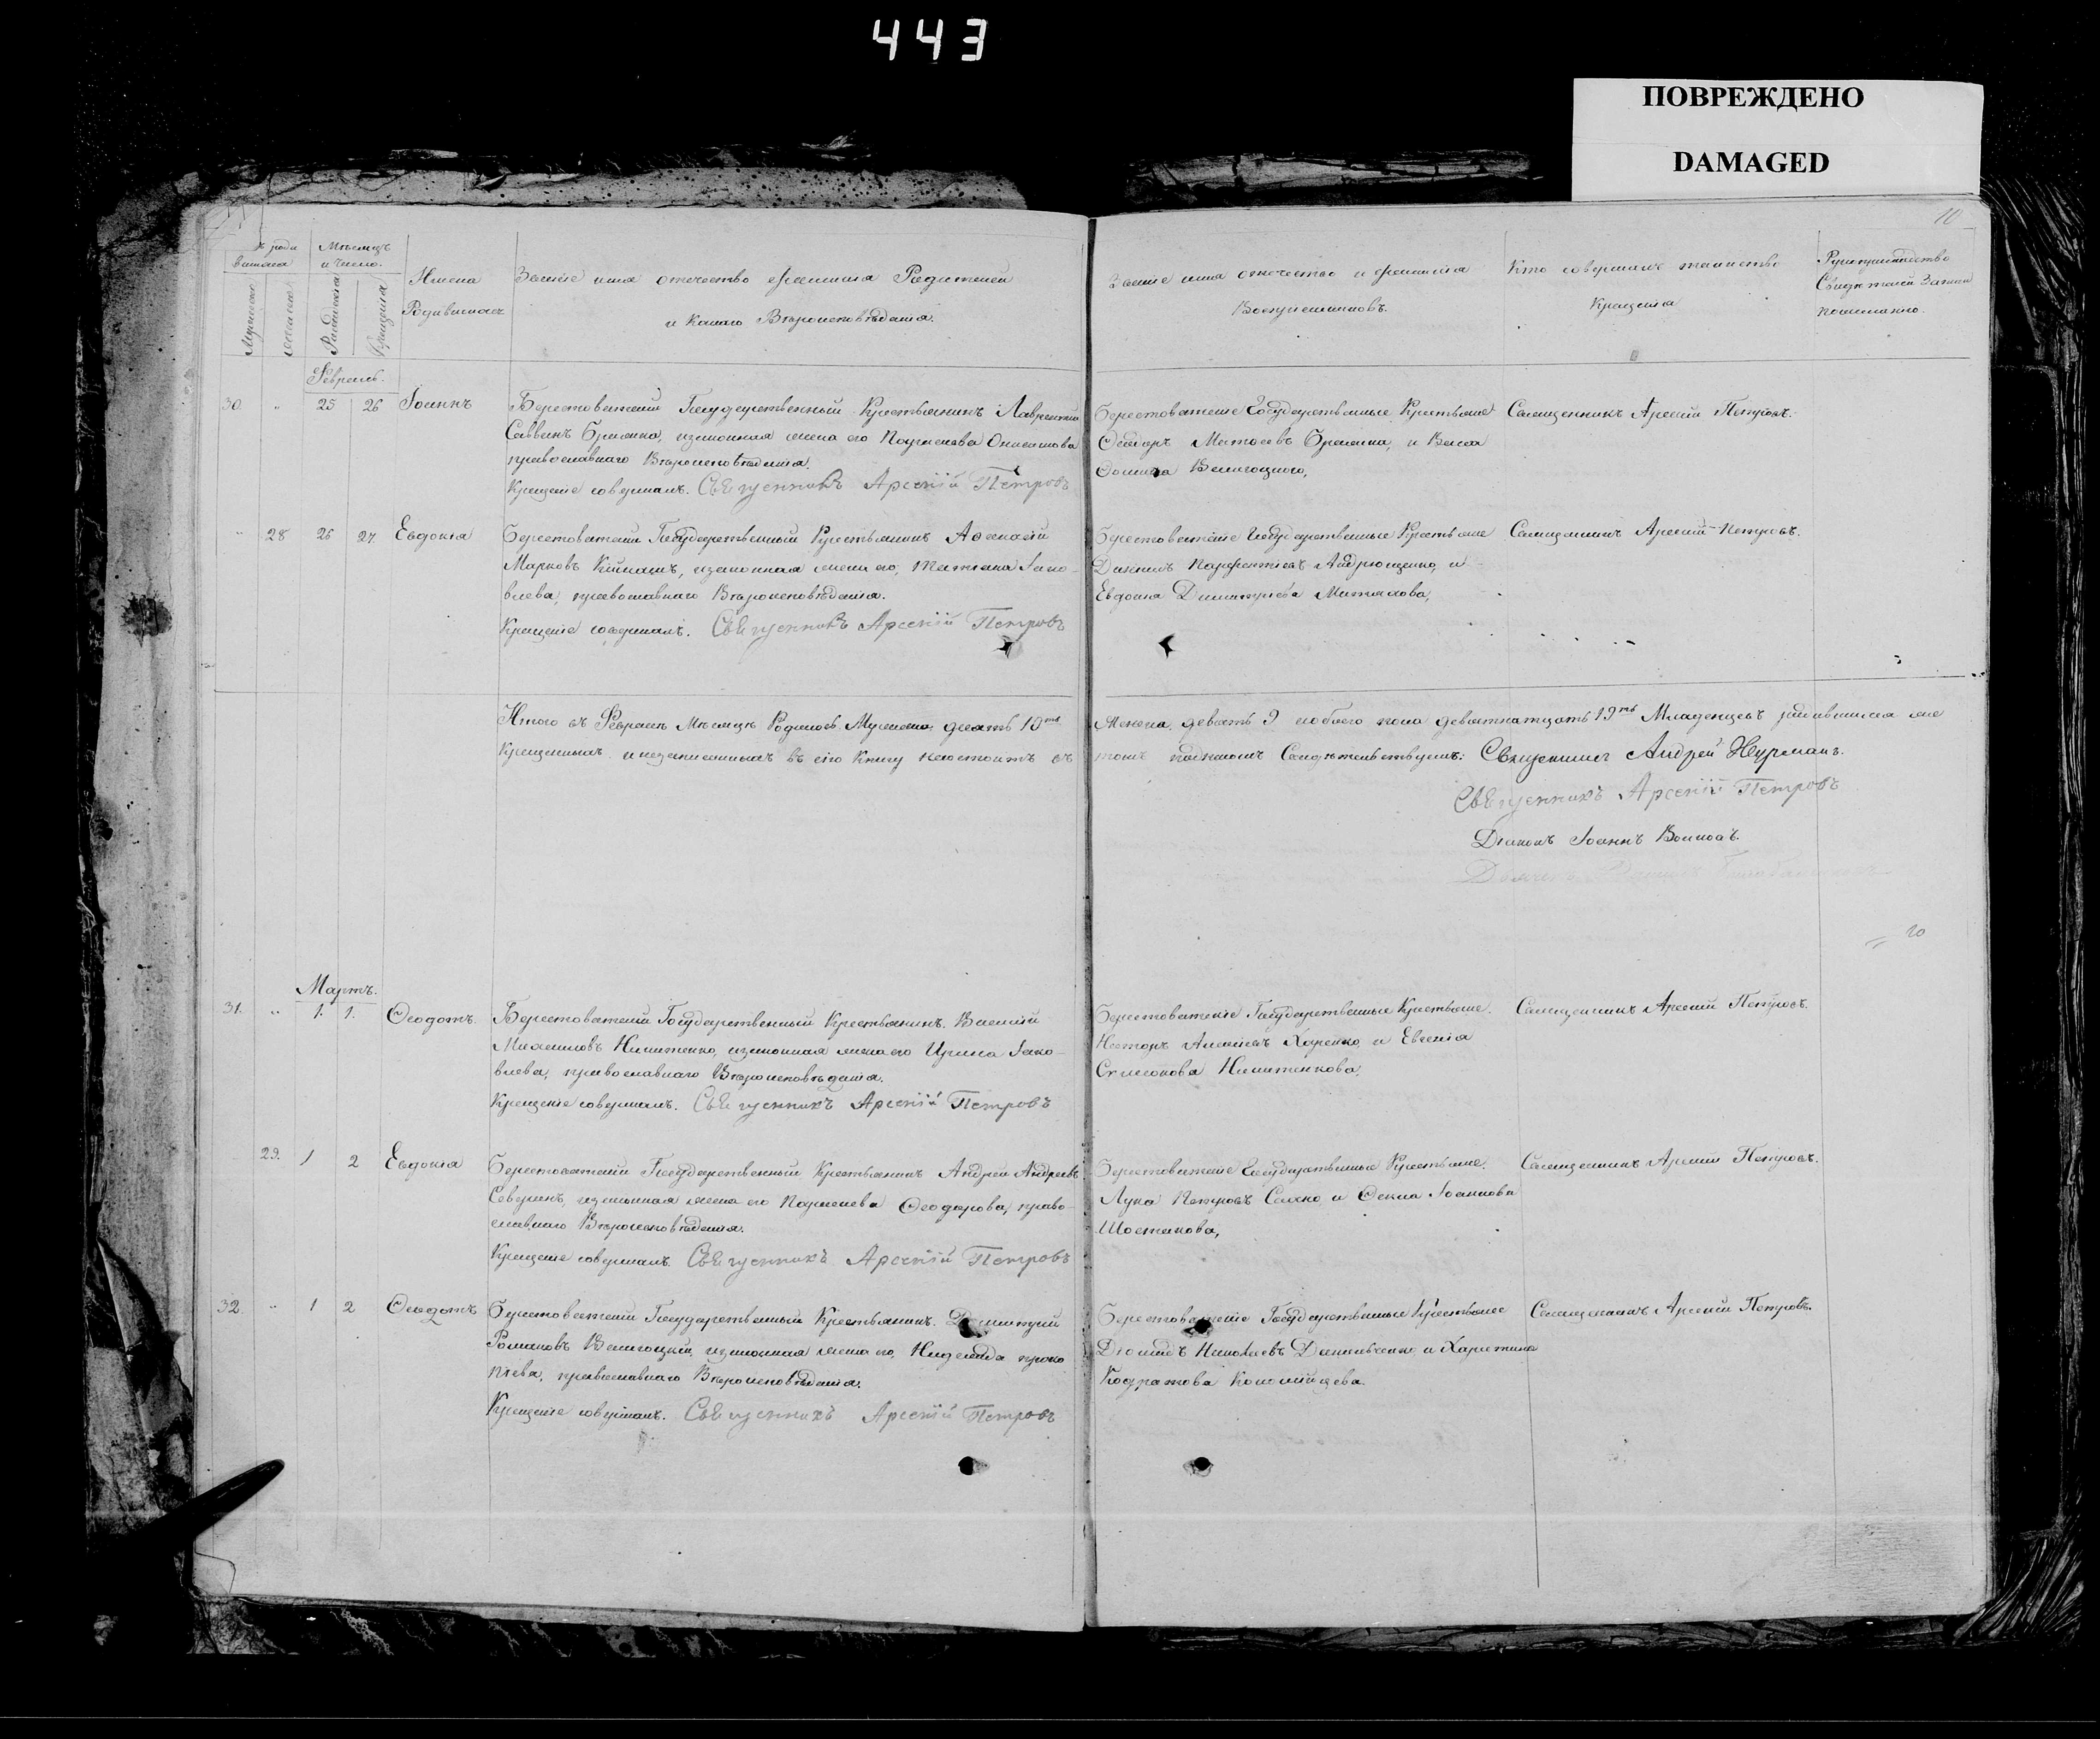 443
ПОВРЕЖДЕНО
DAMAGED
10
Мѣсяцъ
и число.
Имена
Родившихся
Званіе имя отечество и фамилія Родителей
и какаго Вѣроисповѣданія.
Мужеска
женска
Рожденія
Крещенія
Званіе имя отечество и фамилія
Воспріемниковъ.
Кто совершалъ таинство
Крещенія
Рукоприкладство
Свидѣтелей Записи
по желанію.
Февраль.
30. „ 25 26 Іоаннъ
Берестоватскій Государственный Крестьянинъ Лаврентій
Саввинъ, законная жена его
православнаго Вѣроисповѣданія.
Крещеніе совершалъ. Священникъ Арсеній Петровъ
Берестоватскіе Государственные Крестьяне
Феодоръ и Васса
Велигоцкаго,
Священникъ Арсеній Петровъ.
„ 28 26 27 Евдокія
Берестоватскій Государственный Крестьянинъ Афанасій
Марковъ, законная жена его, Татіана Іако-
влева, православнаго Вѣроисповѣданія.
Крещеніе совершалъ. Священникъ Арсеній Петровъ
Берестоватскіе Государственные Крестьяне
Даніилъ Андрющенко, и
Евдокія Димитріева
Священникъ Арсеній Петровъ.
Итого въ Февралѣ Мѣсяцѣ Родилось Мужеска десять 10ть
Женска девять 9 а обоего пола девятнатцать 19ть Младенцевъ родившихся не
крещенныхъ и незаписанныхъ въ сію Книгу неостоитъ въ
томъ подписомъ Свидѣтельствуемъ: Священникъ Андрей
Священникъ Арсеній Петровъ
Діаконъ Іоаннъ Волковъ.
10
Мартъ.
31. „ 1. 1. Ѳеодотъ.
Берестоватскій Государственный Крестьянинъ Василій
Михаиловъ Никитенко, законная жена его Ирина Іако-
влева, православнаго Вѣроисповѣданія.
Крещеніе совершалъ. Священникъ Арсеній Петровъ
Берестоватскіе Государственные Крестьяне.
Несторъ Алексѣевъ и Евгенія
Симеонова Никитенкова,
Священникъ Арсеній Петровъ.
29. 1 2 Евдокія
Берестоватскій Государственный Крестьянинъ Андрей Андреевъ
Северинъ, законная жена его Феодорова, право-
славнаго Вѣроисповѣданія.
Крещеніе совершалъ. Священникъ Арсеній Петровъ
Берестоватскіе Государственные Крестьяне.
Лука Петровъ и Іоаннова
Шостакова,
Священникъ Арсеній Петровъ.
32. „ 1 2 Ѳеодотъ
Берестоватскій Государственный Крестьянинъ Димитрій
Романовъ Велигоцкій, законная жена его, Надежда Проко-
піева, православнаго Вѣроисповѣданія.
Крещеніе совершалъ. Священникъ Арсеній Петровъ
Берестоватскіе Государственные Крестьяне
Діомидъ Николаевъ и Харитина
Кодратова Коломійцева.
Священникъ Арсеній Петровъ.